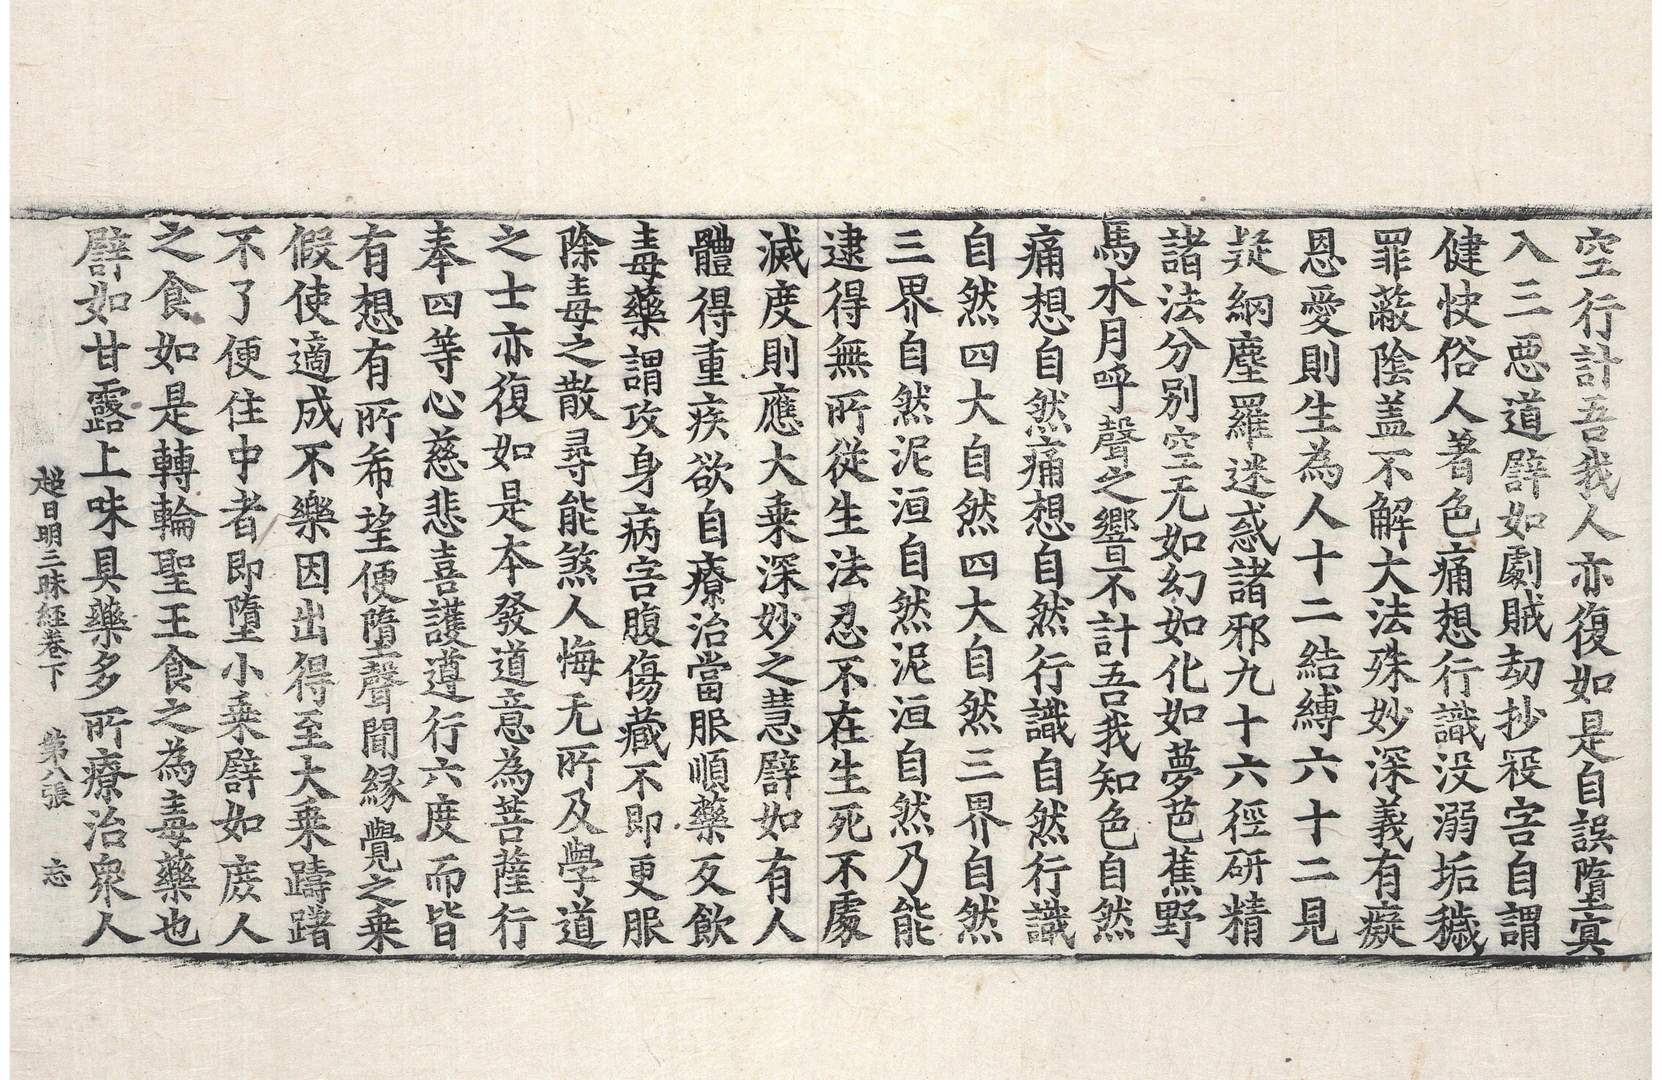 空行計吾我人亦復如是自誤墮冥
入三惡道譬如劇賊劫抄殺害自謂
健快俗人著色痛想行識沒溺垢穢
罪蔽陰盖不解大法殊妙深義有癡
恩愛則生為人十二結縛六十二見
疑網塵羅迷惑諸邪九十六徑研精
諸法分別空无如幻如化如夢芭蕉野
馬水月呼聲之響不計吾我知色自然
痛想自然痛想自然行識自然行識
自然四大自然四大自然三界自然
三界自然泥洹自然泥洹自然乃能
逮得無所從生法忍不在生死不處
滅度則應大乗深妙之慧譬如有人
體得重疾欲自療治當服順藥反飲
毒藥謂攻身病害腹傷藏不即更服
除毒之散尋能煞人悔无所及學道
之士亦復如是本發道意為菩薩行
奉四等心慈悲喜護遵行六度而皆
有想有所希望便墮聲聞縁覺之乗
假使適成不樂因出得至大乗躊躇
不了便住中者即墮小乗譬如庶人
之食如是轉輪聖王食之為毒藥也
譬如甘露上味具藥多所療治衆人
超日明三昧經卷下 第八張 忘